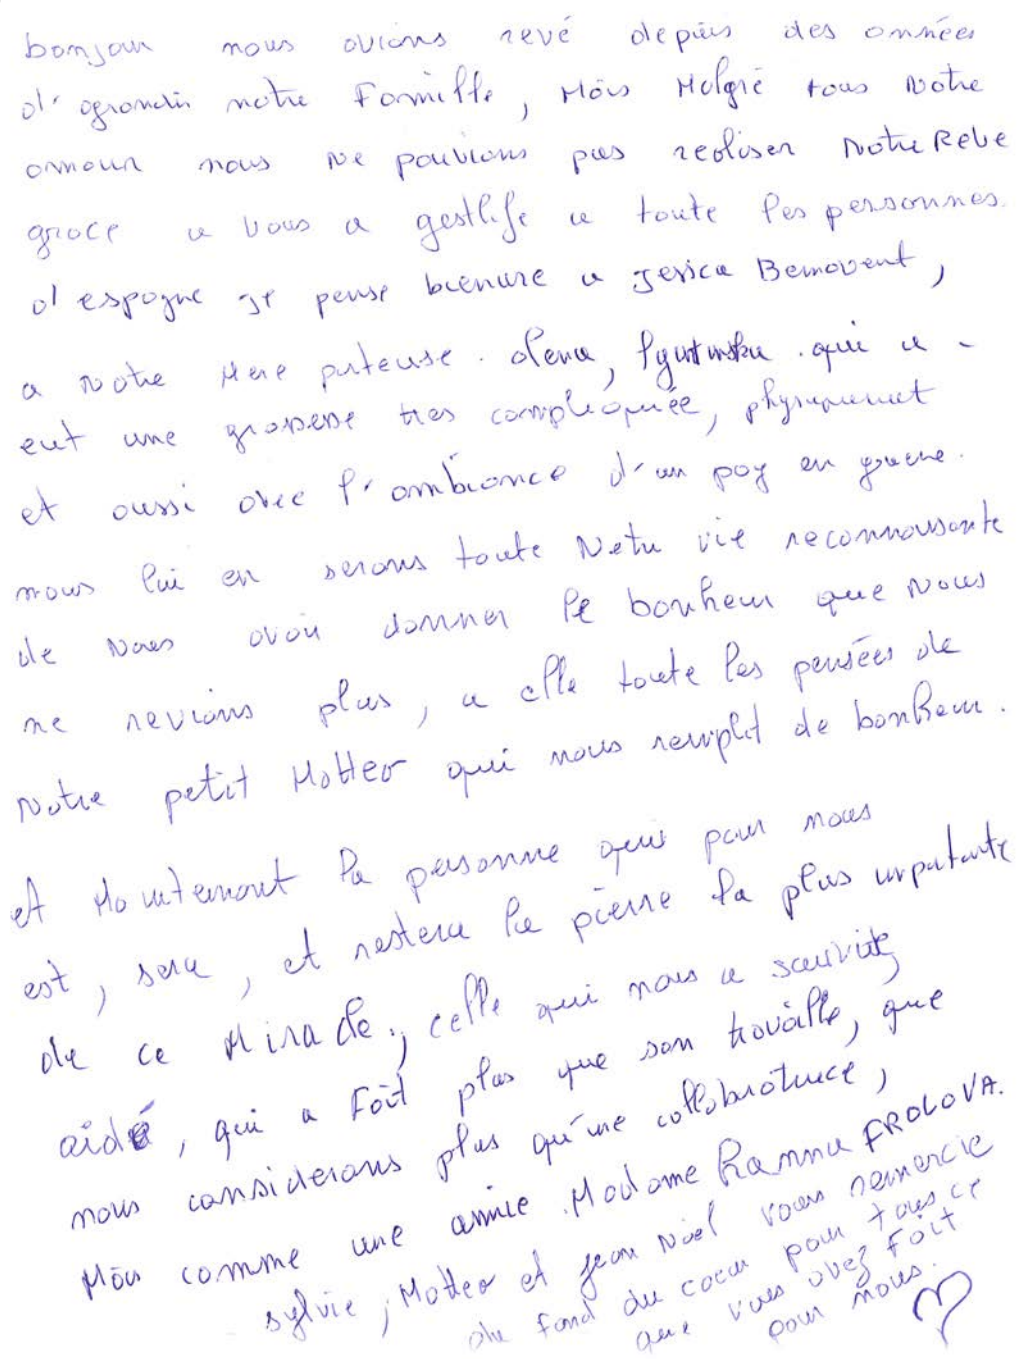 bonjour nous avions revé depuis des années
d'agrandir notre Famille, Mais Malgré tous Notre
amour nous Ne pouvions pas realiser Notre Reve
grace a vous a gestlife a toute les personnes.
d'espagne je pense bienure a Jesica Bemavent,
a Notre Mere porteuse. Olena, qui a
eut une grossesse tres compliquée, physiquement
et aussi avec l'ambiance d'un pay en guerre.
nous lui en serons toute Notre vie reconnaissante
de Nous avoir donner le bonheur que Nous
ne revions plus, a elle toute les pensées de
Notre petit Matteo qui nous remplit de bonheur.
et Maintenant la personne qui pour nous
est, sera, et restera la pierre la plus importante
de ce Miracle, celle qui nous a
aidé, qui a Fait plus que son travaille, que
nous considerons plus qu'une collaboratrice,
Mais comme une amie. Madame FROLOVA.
sylvie, Matteo et jean Noel vous remercie
du fond du coeur pour tous ce
que vous avez Fait
pour nous.